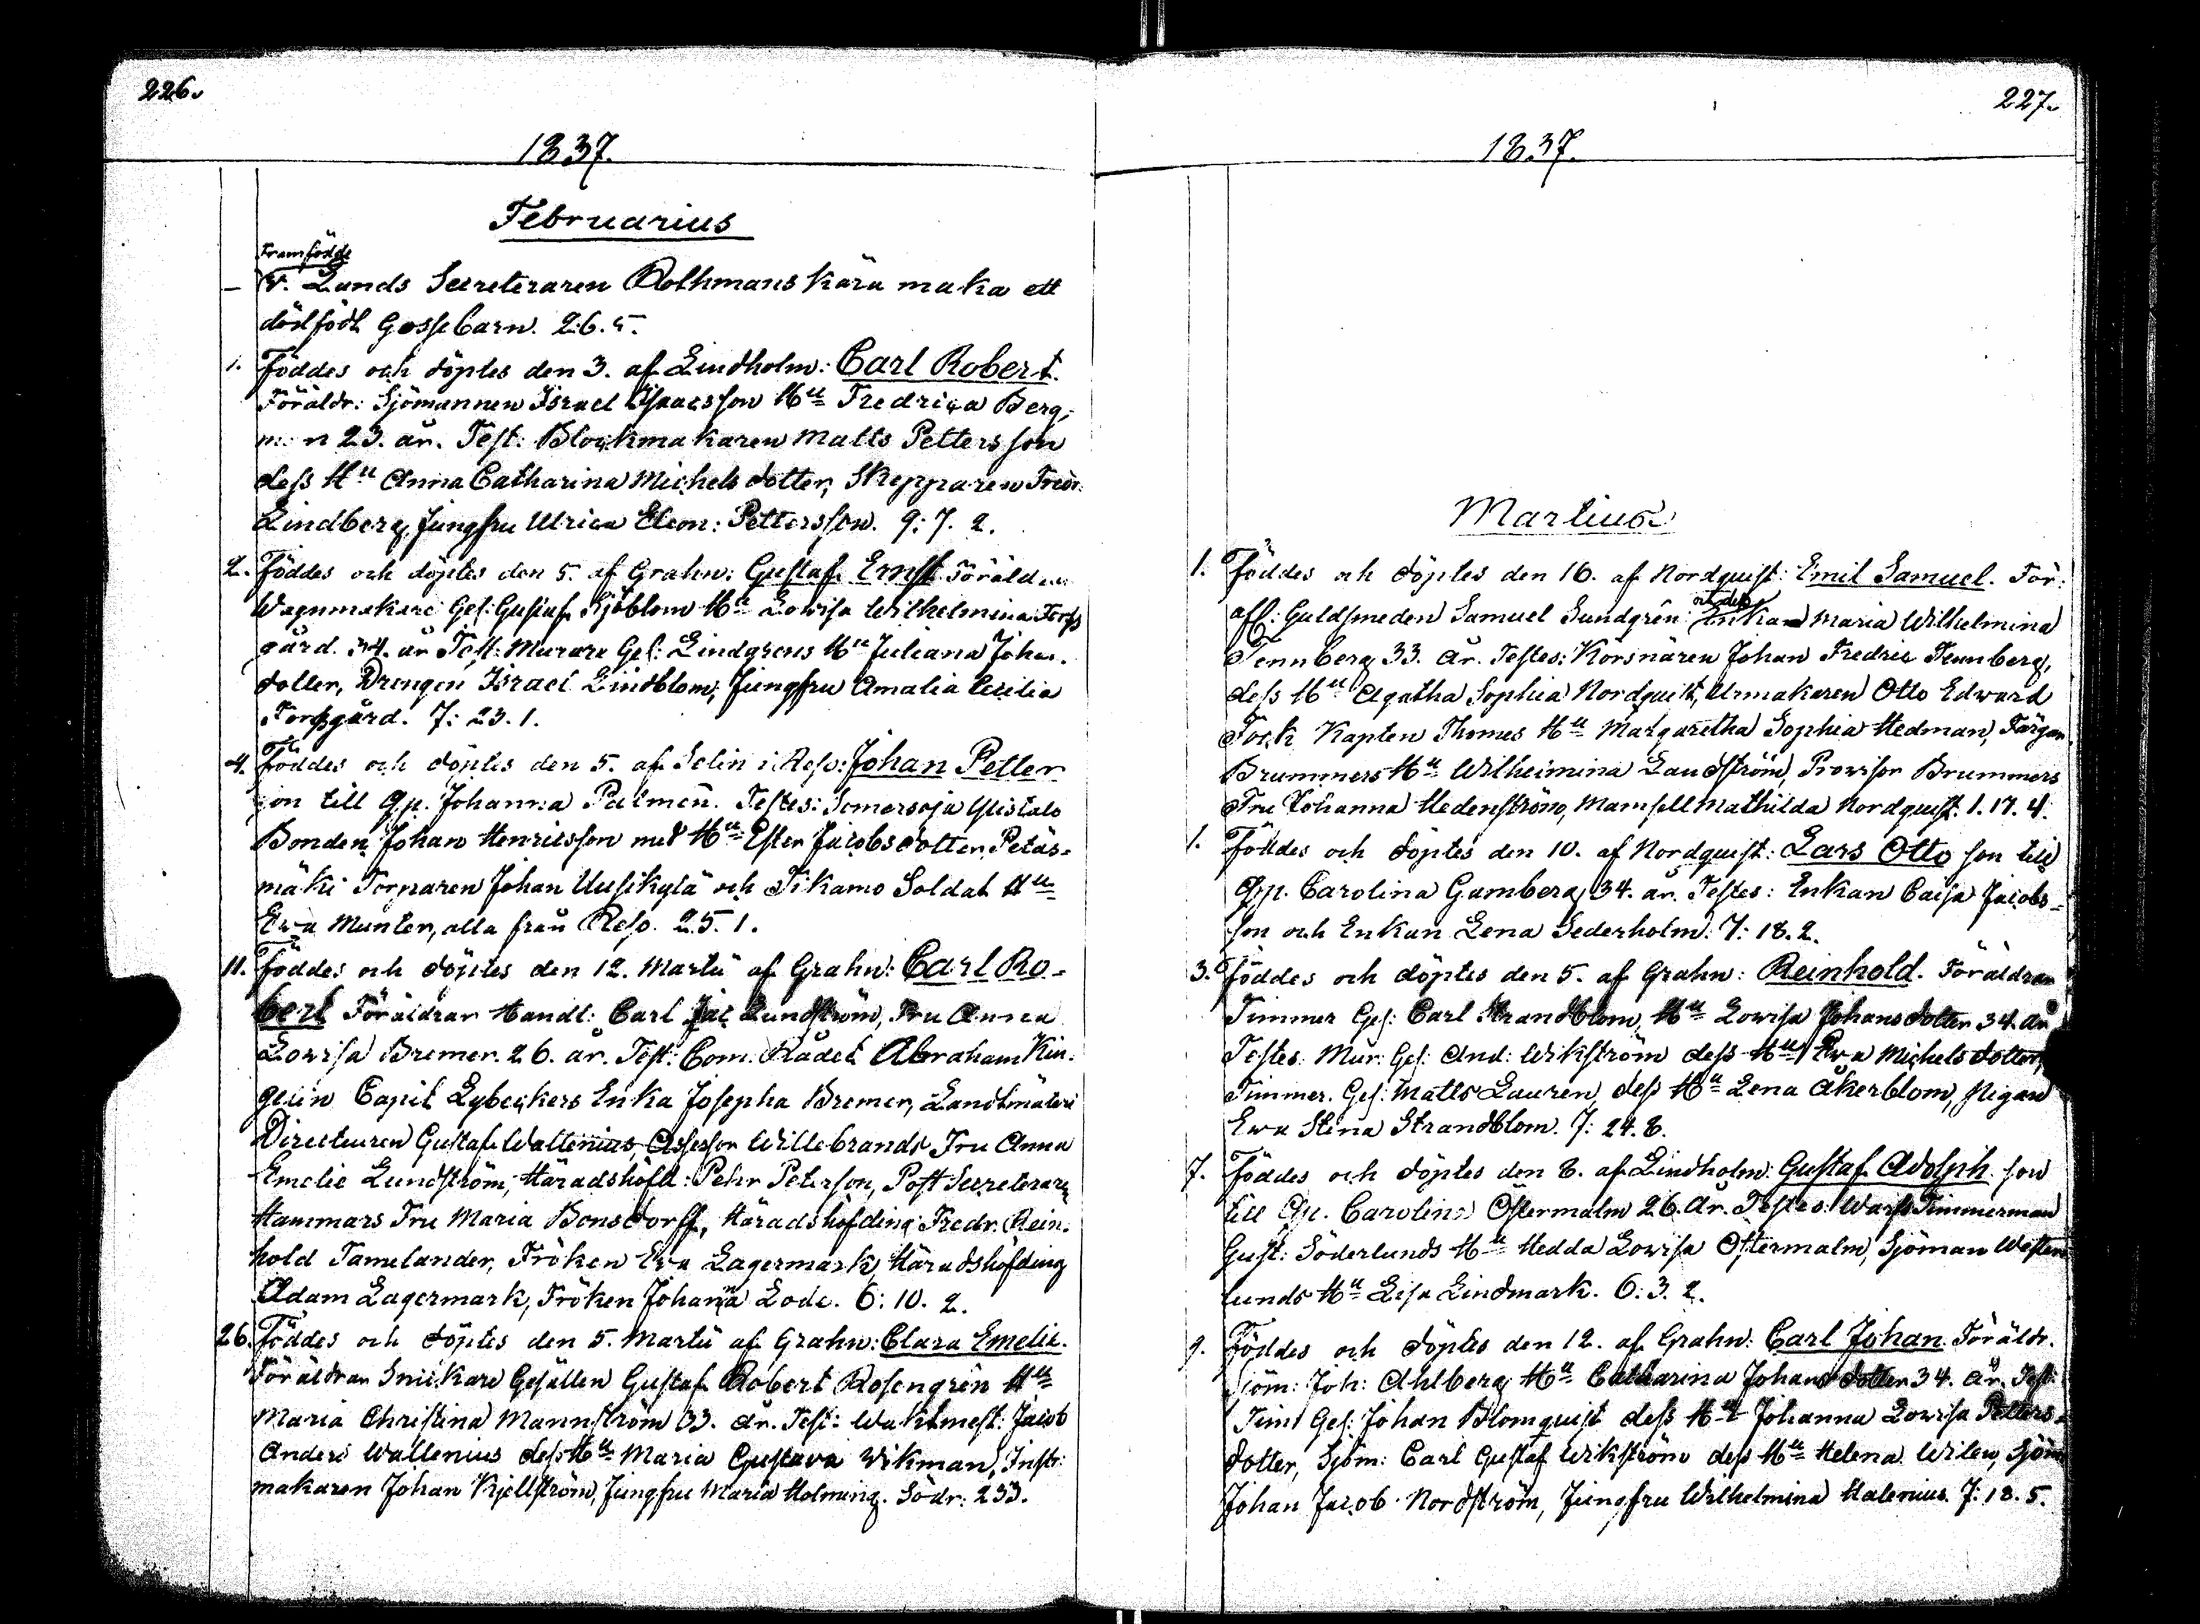 226.
1837.
Februarius
Framfödde
– V. Lands Secreteraren Rothmans kära maka ett
dödfödt Gossebarn. 26. 5.
1. Föddes och döptes den 3. af Lindholm: Carl Robert.
Föräldr: Sjömannen Israel Isaacsson Hu Fredrica Berg-
man 23. år. Test: Blockmakaren Matts Pettersson
dess Hu Anna Catharina Michelsdotter, Skepparen Fredr:
Lindberg, Jungfru Ulrica Eleon: Pettersson. 9: 7. 2.
2. Föddes och döptes den 5. af Grahn: Gustaf Ernst. Föräldrar
Wagnmakare Ges: Gustaf Sjöblom Hu Lovisa Wilhelmina Forss
gård. 34. år Test: Murare Ges: Lindgrens Hu Juliana Johans
dotter, Drengen Israel Lindblom, Jungfru Amalia Cecilia
Forssgård. 7: 23. 1.
4. Föddes och döptes den 5. af Selin i Reso: Johan Petter
son till Qp. Johanna Palmén. Testes: Somersoja Ylistalo
Bonden Johan Henricsson med Hu Ester Jacobsdotter, Petäs-
mäki Torparen Johan Uusikylä och Tikamo Soldat Hu
Eva Munter, alla från Reso. 25. 1.
11. Föddes och döptes den 12. Martii af Grahn: Carl Ro-
bert Föräldrar Handl: Carl Jac Lundström, Fru Anna
Lovisa Bremer. 26. år. Test: Com. Rådet Abraham Kin-
gelin Capit Lybeckers Enka Josepha Bremer, Landtmäteri
Directeuren Gustaf Wallenius, Assessor Willebrands Fru Anna
Emelie Lundström, Häradshöfd: Pehr Peterson, Post Secreterare
Hammars Fru Maria Bonsdorff, Häradshöfding Fredr. Rein-
hold Tamelander, Fröken Eva Lagermark, Häradshöfding
Adam Lagermark, Fröken Johanna Lode. 6: 10. 2.
26. Föddes och döptes den 5. Martii af Grahn: Clara Emelie.
Föräldrar Snickare Gesällen Gustaf Robert Rosengrén Hu
Maria Christina Mannström 33. år. Test: Waktmest: Jacob
Anders Wallenius dess Hu Maria Gustava Wikman, Instr:
makaren Johan Kjellström, Jungfru Maria Holming. Södr: 233.
227.
1837.
Martius
1. Föddes och döptes den 16. af Nordquist: Emil Samuel. För:
afl: Guldsmeden Samuel Sundgrén och dess Enkan Maria Wilhelmina
Tennberg 33. år. Testes: Körsnären Johan Fredric Tennberg,
dess Hu Agatha Sophia Nordquist, Urmakaren Otto Edward
Fock Kapten Thomes Hu Margaretha Sophia Hedman, Färgar
Brummers Hu Wilhelmina Landström, Provisor Brummers
Fru Johanna Hedenström, Mamsell Mathilda Nordquist. 1. 17. 4.
1. Föddes och döptes den 10. af Nordquist: Lars Otto son till
Qp. Carolina Gamberg 34. år. Testes: Enkan Caisa Jacobs-
son och Enkan Lena Sederholm. 7: 18. 2.
3. Föddes och döptes den 5. af Grahn: Reinhold. Föräldrar
Timmer Ges: Carl Strandblom, Hu Lovisa Johansdotter 34. år
Testes: Mur: Ges: And: Wikström dess Hu Eva Michelsdotter,
Timmer. Ges: Matts Lauren, dess Hu Lena Åkerblom, Pigan
Eva Stina Strandblom. 7: 24. 8.
7. Föddes och döptes den 8. af Lindholm: Gustaf Adolph. son
till Qp. Carolina Östermalm 26. år. Testes: Warfs Timmerman
Gust: Söderlunds Hu Hedda Lovisa Östermalm, Sjöman Westen
lunds Hu Lisa Lindmark. 6: 3. 2.
9. Föddes och döptes den 12. af Grahn: Carl Johan. Föräldr.
Sjöm: Joh: Ahlberg Hu Catharina Johansdotter 34. år. Test:
Tim: Ges: Johan Blomquist dess Hu Johanna Lovisa Petters-
dotter, Sjöm: Carl Gustaf Wikström dess Hu Helena Wilen, Sjöm
Johan Jacob Nordström, Jungfru Wilhelmina Halenius. 7: 18. 5.